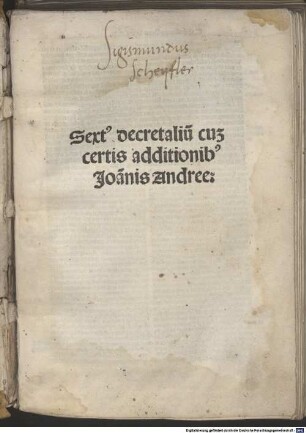 Sigismundus
Scheyfler
Sextꝰ decretaliū cuꝫ
certis additionibꝰ
Joānis Andree:
Digitalisierung gefördert durch die Deutsche Forschungsgemeinschaft